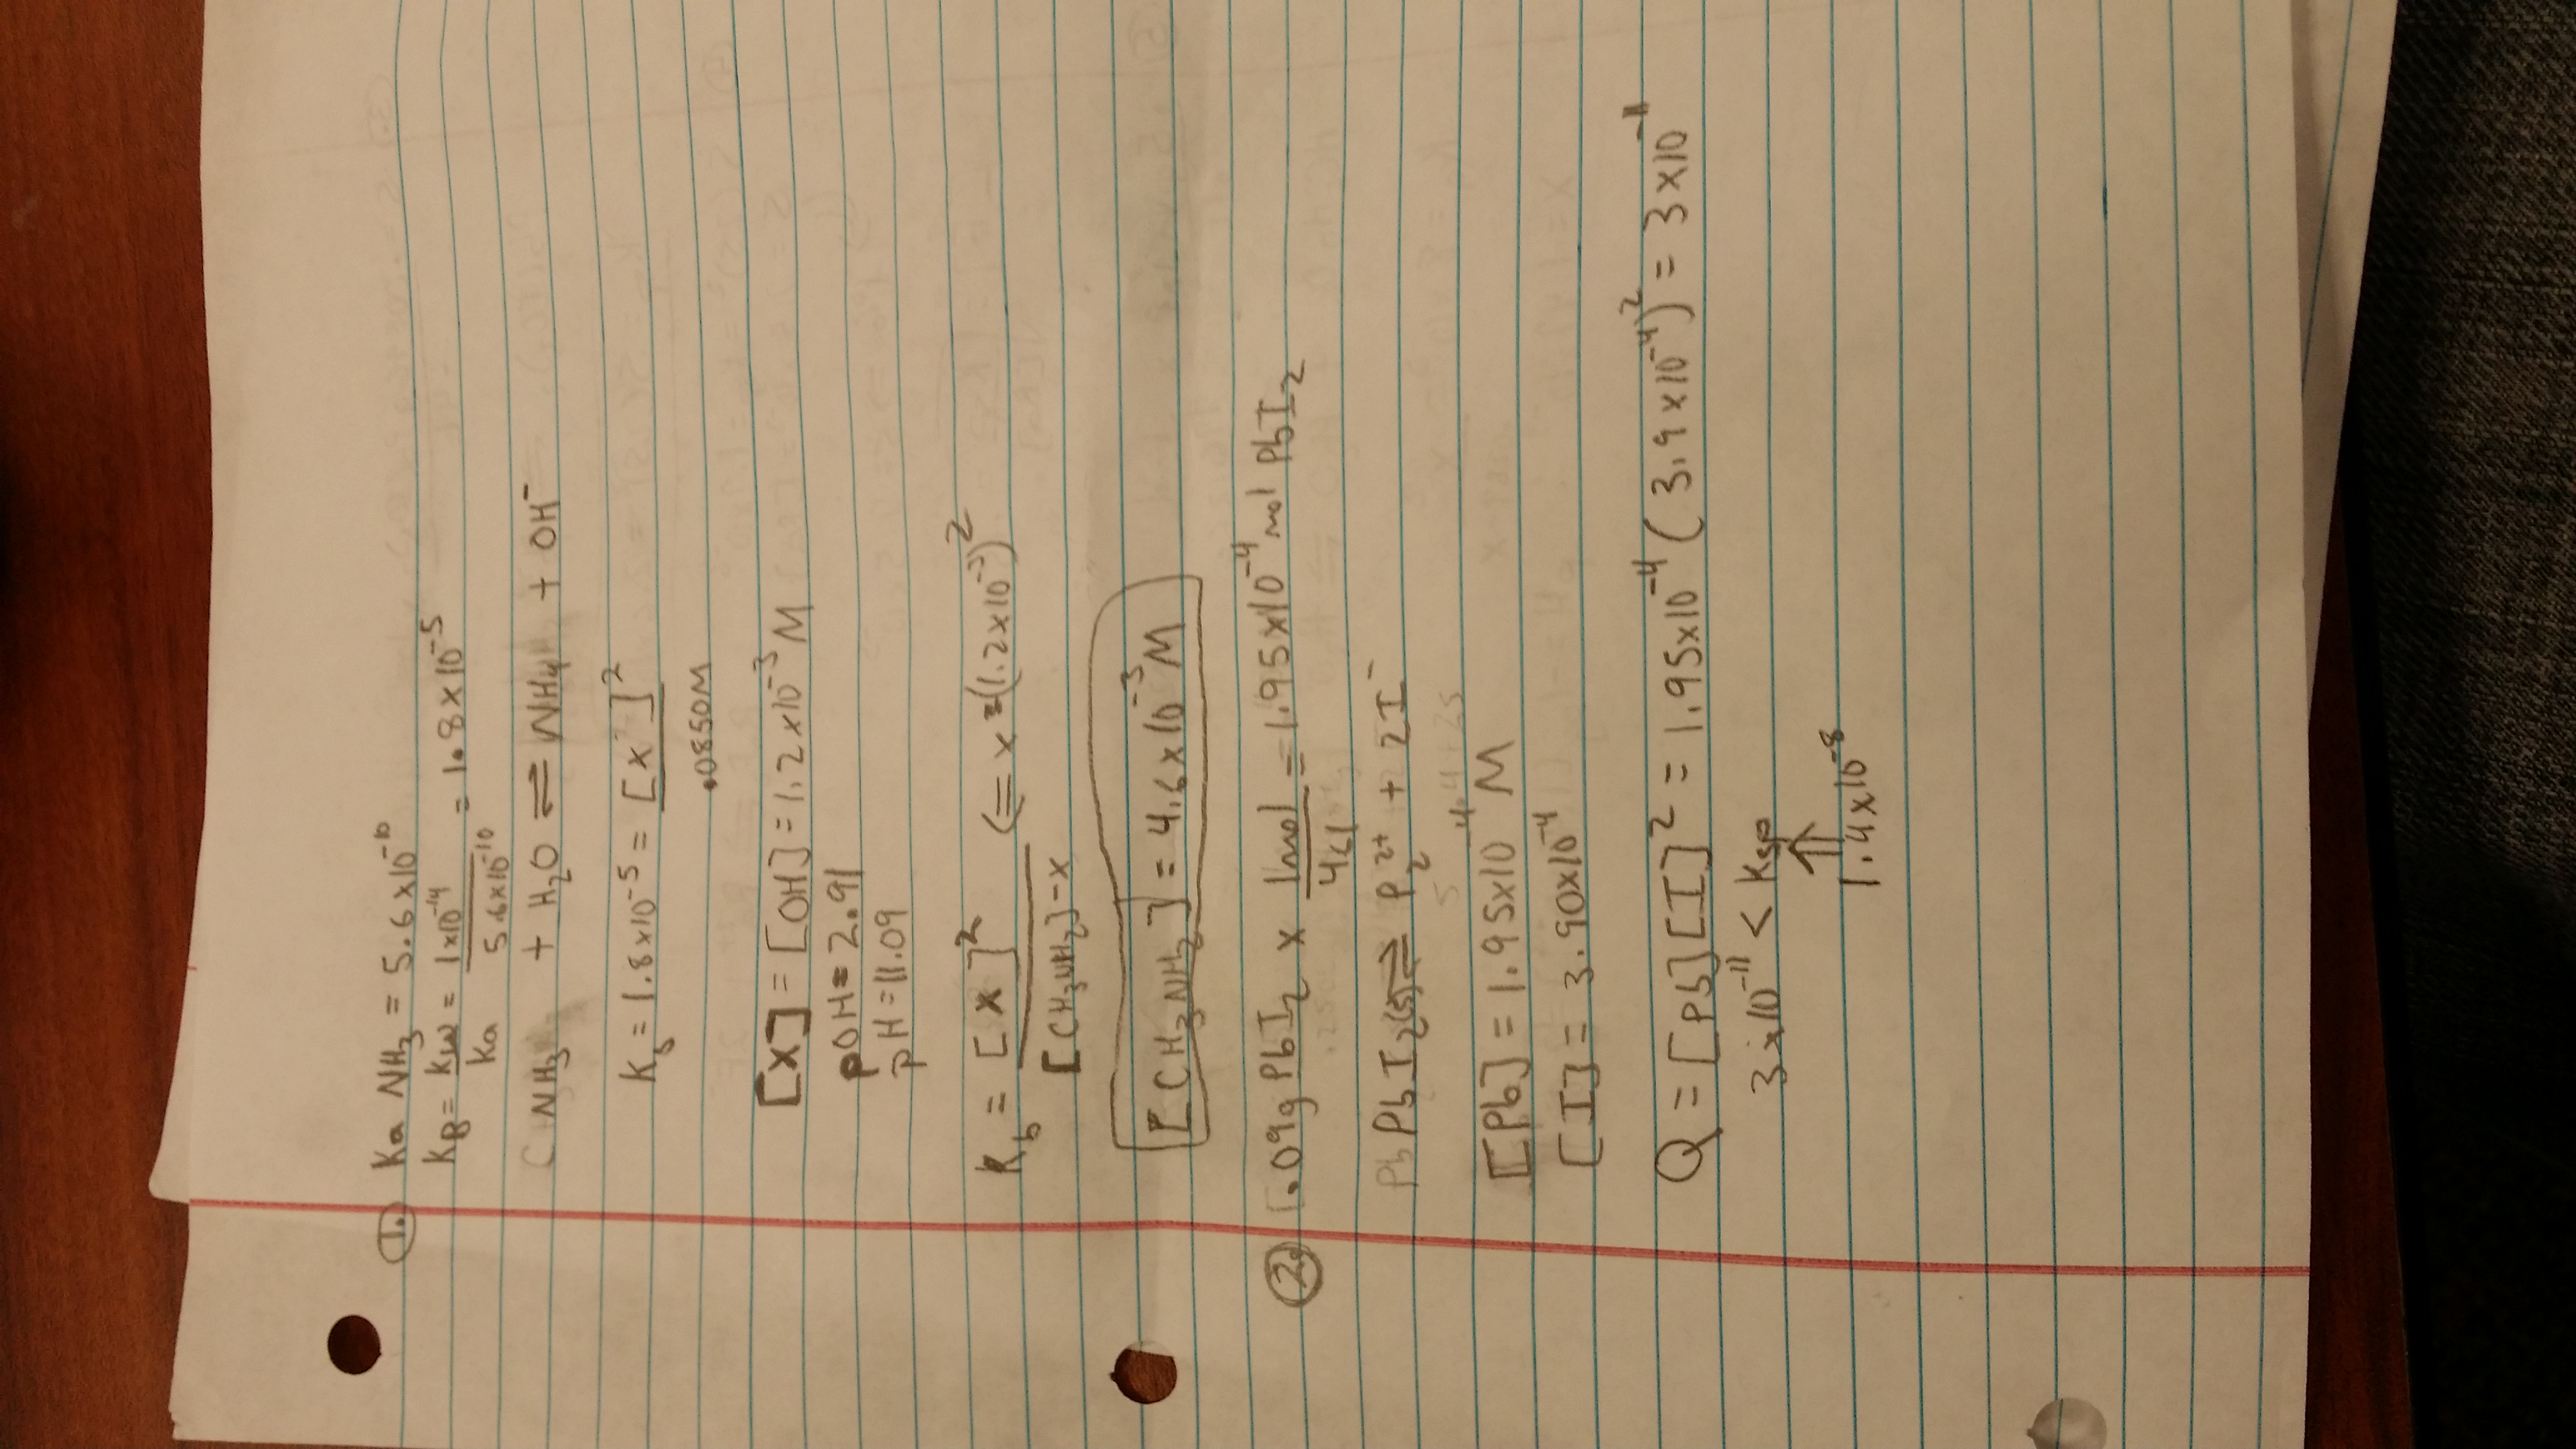 1. Ka NH₃ = 5.6x10⁻¹⁰
KB = Kw/Ka = 1x10⁻¹⁴/5.6x10⁻¹⁰ = 1.8x10⁻⁵
NH₃ + H₂O ⇌ NH₄ + OH⁻
K_b = 1.8x10⁻⁵ = [x]²/.0850M
[x] = [OH] = 1.2x10⁻³ M
pOH = 2.91
pH = 11.09
K_b = [x]²/[CH₃NH₂]-x (= x = (1.2x10⁻³)²
[CH₃NH₂] = 4.6x10⁻³ M
2. .09g PbI₂ x 1mol/461 = 1.95x10⁻⁴ mol PbI₂
PbI₂(s) ⇌ P₂²⁺ + 2I⁻
[Pb] = 1.95x10⁻⁴ M
[I] = 3.90x10⁻⁴
Q = [Pb][I]² = 1.95x10⁻⁴ (3.9x10⁻⁴)² = 3x10⁻¹¹
3x10⁻¹¹ < Ksp
⇑
1.4x10⁻⁸